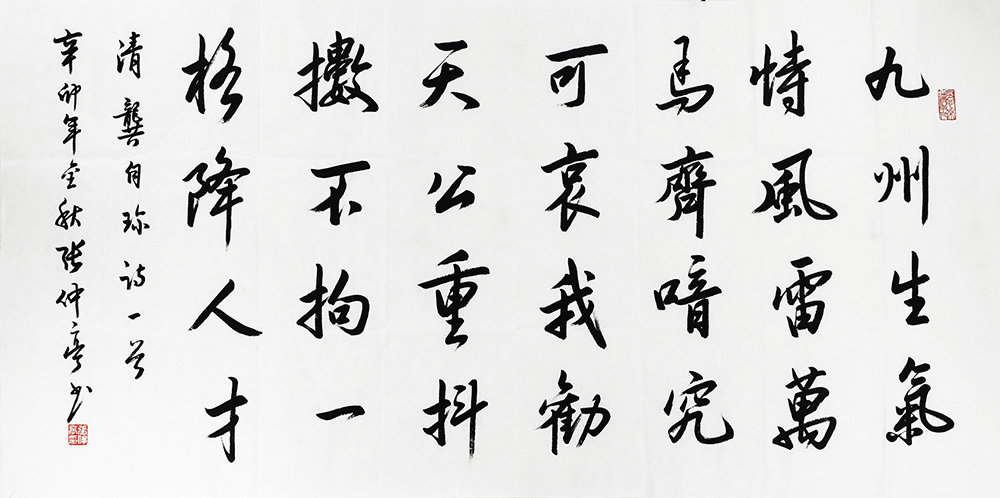 九州生氣
恃風雷萬
馬齊喑究
可哀我勸
天公重抖
擻不拘一
格降人才
清龔自珍诗一首
辛卯年金秋張仲亭书